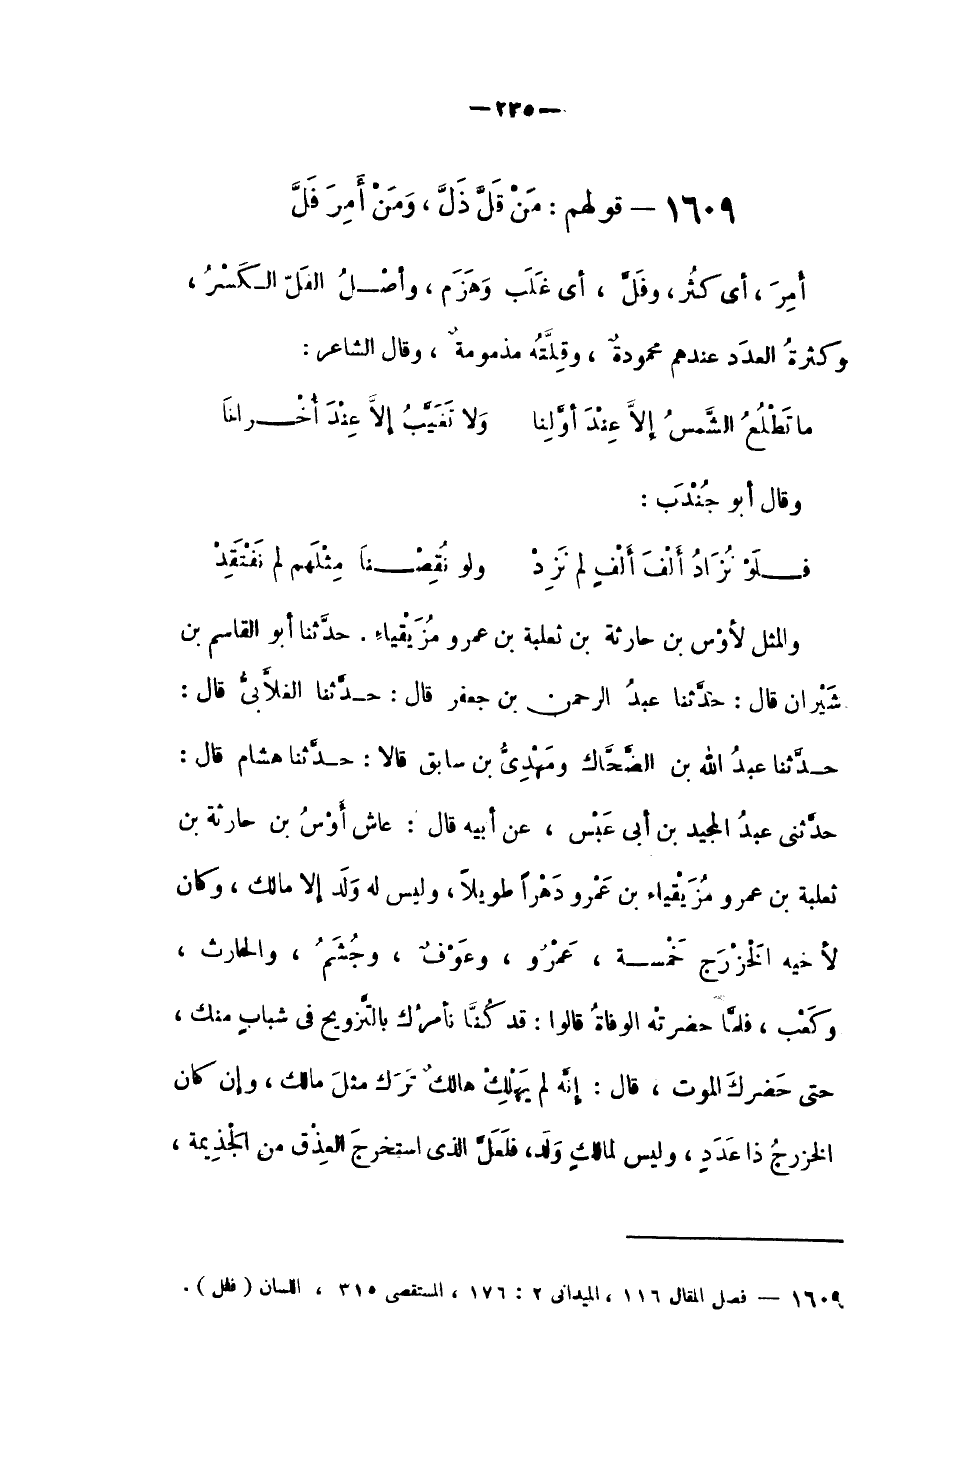 —٢٣٥—
١٦٠٩ — قولهم : مَنْ قَلَّ ذَلَّ ، وَمَنْ أَمِرَ فَلَّ
أمِرَ ، أى كثُر ، وفَلَّ ، أى غَلَب وَهَزَم ، وأصْـلُ الفَلّ الـكَسْرُ ،
وكثرةُ العدَد عندهم محمودةٌ ، وقِلَّتُه مذمومةٌ ، وقال الشاعر :
ما تَطْلُعُ الشَّمسُ إلاَّ عِنْدَ أوَّلِنا وَلا تَغَيَّبُ إلاَّ عِنْدَ أُخْـرانا
وقال أبو جُنْدَب :
فـلَوْ نُزَادُ أَلْفَ أَلْفٍ لم نَزِدْ ولو نُقِصْـنا مِثْلَهم لم نَفْتَقِدْ
والمثل لأوْس بن حارثة بن ثعلبة بن عمرو مُزَيْقياء . حدَّثنا أبو القاسم بن
شَيْران قال : حدَّثنا عبدُ الرحمن بن جعفر قال : حـدَّثنا الغلاَّبىُّ قال :
حـدَّثنا عبدُ الله بن الضَّحَّاك ومَهْدِىُّ بن سابق قالا : حـدَّثنا هشام قال :
حدَّثنى عبدُ المجيد بن أبى عَبْس ، عن أبيه قال : عاش أَوْسُ بن حارثة بن
ثعلبة بن عمرو مُزَيْقياء بن عَمْرو دَهْراً طويلاً ، وليس له وَلَد إلا مالك ، وكان
لأخيه الخَزْرَج خَمْـسة ، عَمْرٌو ، وعَوْفٌ ، وجُشَمُ ، والحارث ،
وكَعْب ، فلمَّا حضرتْه الوفاةُ قالوا : قد كُنَّا نأمرُك بالتَّزويج فى شبابٍ منك ،
حتى حَضركَ الموت ، قال : إنَّه لم يَهْلِكْ هالكٌ تَرَك مثلَ مالك ، وإن كان
الخزرجُ ذا عَدَدٍ ، وليس لمالكٍ وَلَد ، فلَعَلَّ الذى استخرجَ العِذْق من الجْذِيمة ،
١٦٠٩ — فصل المقال ١١٦ ، الميدانى ٢ : ١٧٦ ، المستقصى ٣١٥ ، اللسان ( فلل ) .